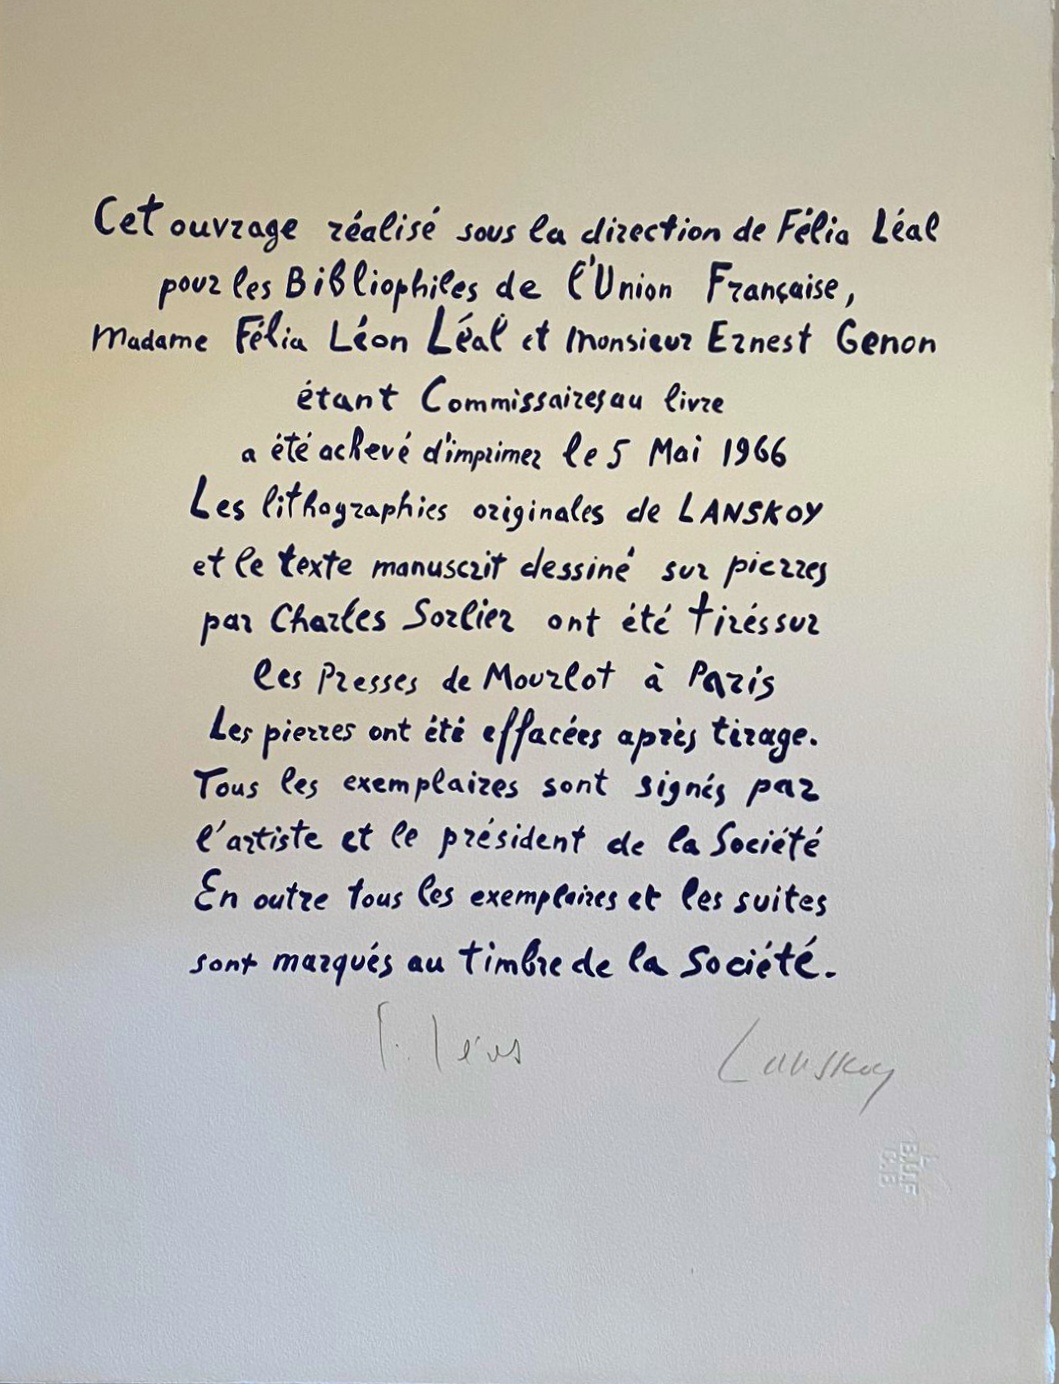 Cet ouvrage réalisé sous la direction de Félia Léal
pour les Bibliophiles de l'Union Française,
Madame Félia Léon Léal et Monsieur Ernest Genon
étant Commissaires au livre
a été achevé d'imprimer le 5 Mai 1966
Les lithographies originales de LANSKOY
et le texte manuscrit dessiné sur pierres
par Charles Sorlier ont été tirés sur
les Presses de Mourlot à Paris
Les pierres ont été effacées après tirage.
Tous les exemplaires sont signés par
l'artiste et le président de la Société
En outre tous les exemplaires et les suites
sont marqués au timbre de la Société.
Lanskoy
B.U.F